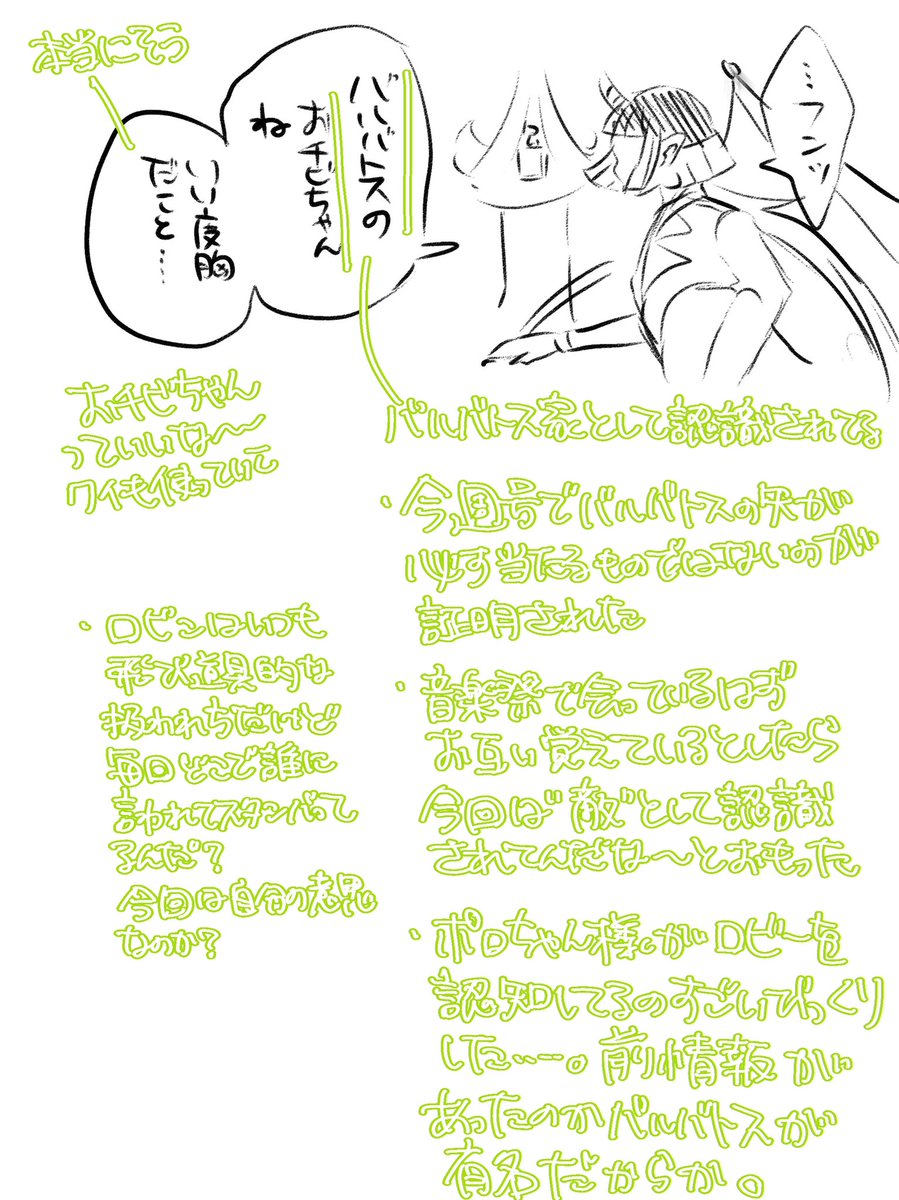 …フンッ
バルバトスの
おチビちゃん
ね
いい度胸
だこと……
本当にそう
バルバトス家として認識されてる
おチビちゃん
っていいな〜
ワイも使っていこ
・今週号でバルバトスの矢が
必ず当たるものではないのが
証明された
・音楽祭で会っているはず
お互い覚えているとしたら
今回は“敵”として認識
されてんだな〜とおもった
・ポロちゃん様がロビーを
認知してるのすごいびっくり
した…ー。前情報が
あったのかバルバトスが
有名だからか。
・ロビンはいつも
飛び道具的な
扱われちだけど
毎回どこで誰に
言われてスタンバって
るんだ?
今回は自分の意思
なのか?